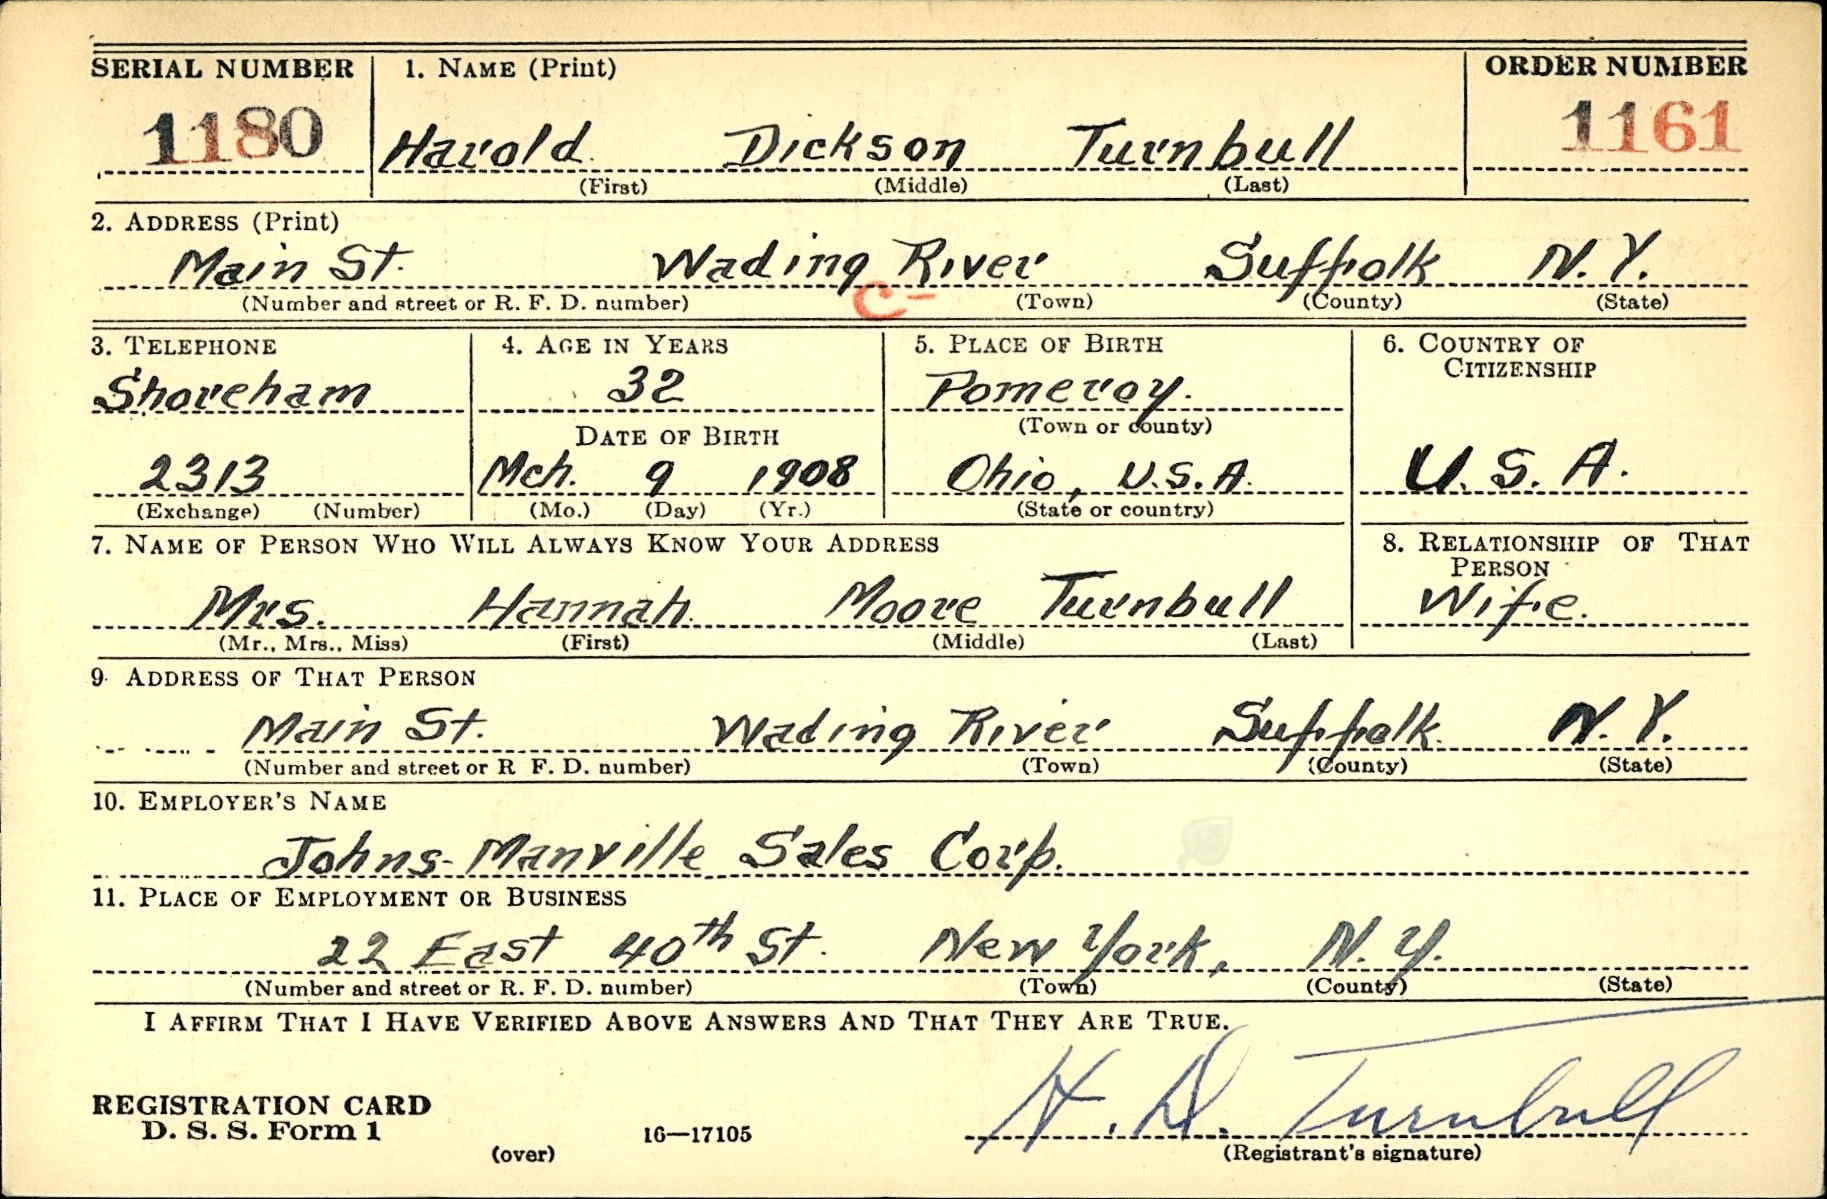 SERIAL NUMBER 1. NAME (Print) ORDER NUMBER
1180 Harold Dickson Turnbull 1161
(First) (Middle) (Last)
2. ADDRESS (Print)
Main St. Wading River Suffolk N.Y.
(Number and street or R. F. D. number) C- (Town) (County) (State)
3. TELEPHONE 4. AGE IN YEARS 5. PLACE OF BIRTH 6. COUNTRY OF
CITIZENSHIP
Shoreham 32 Pomeroy.
(Town or county)
DATE OF BIRTH
2313 Mch. 9 1908 Ohio, U.S.A. U.S.A.
(Exchange) (Number) (Mo.) (Day) (Yr.) (State or country)
7. NAME OF PERSON WHO WILL ALWAYS KNOW YOUR ADDRESS 8. RELATIONSHIP OF THAT
PERSON
Mrs. Hannah Moore Turnbull Wife.
(Mr., Mrs., Miss) (First) (Middle) (Last)
9. ADDRESS OF THAT PERSON
Main St. Wading River Suffolk N.Y.
(Number and street or R F. D. number) (Town) (County) (State)
10. EMPLOYER'S NAME
Johns-Manville Sales Corp.
11. PLACE OF EMPLOYMENT OR BUSINESS
22 East 40th St. New York, N.Y.
(Number and street or R. F. D. number) (Town) (County) (State)
I AFFIRM THAT I HAVE VERIFIED ABOVE ANSWERS AND THAT THEY ARE TRUE.
H. D. Turnbull
REGISTRATION CARD
D. S. S. Form 1 16—17105
(over) (Registrant's signature)